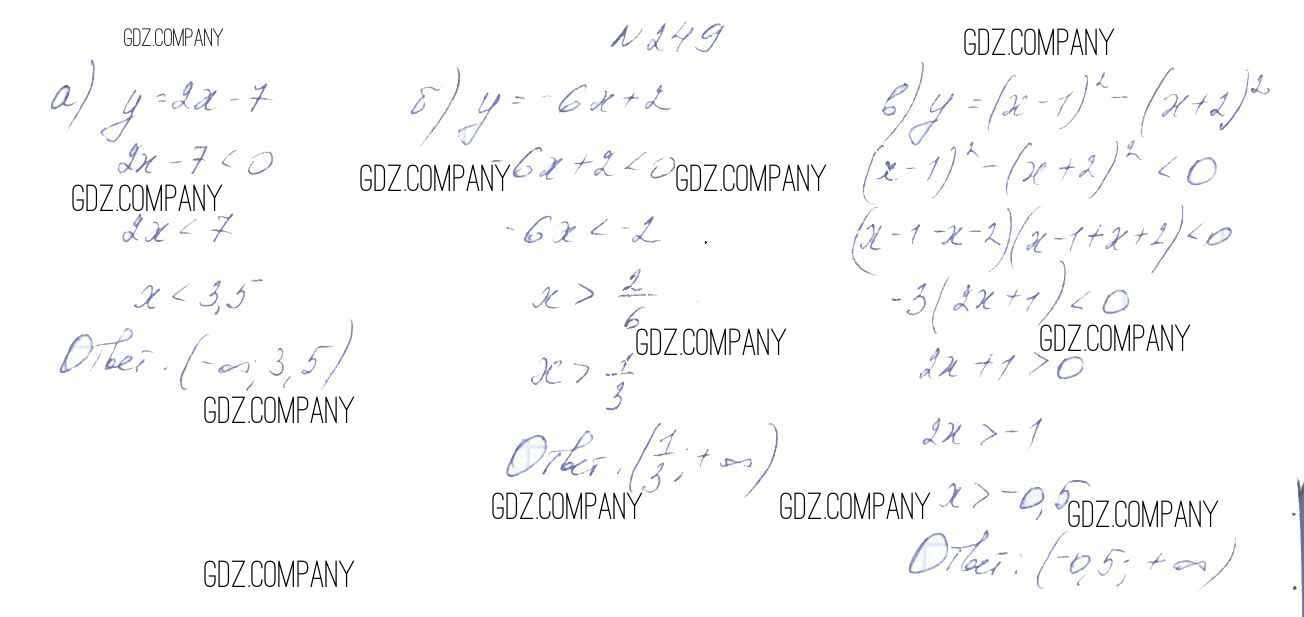 GDZ.COMPANY
№249
GDZ.COMPANY
а) y=2x-7
2x-7<0
GDZ.COMPANY
2x<7
x<3,5
Ответ: (-∞; 3,5)
GDZ.COMPANY
GDZ.COMPANY
б) y=-6x+2
-6x+2<0
GDZ.COMPANY
GDZ.COMPANY
-6x<-2
x> 2/6
GDZ.COMPANY
x> 1/3
Ответ: (1/3; +∞)
GDZ.COMPANY
в) y=(x-1)²-(x+2)²
(x-1)²-(x+2)²<0
(x-1-x-2)(x-1+x+2)<0
-3(2x+1)<0
GDZ.COMPANY
2x+1>0
2x>-1
GDZ.COMPANY
x>-0,5
GDZ.COMPANY
Ответ: (-0,5; +∞)